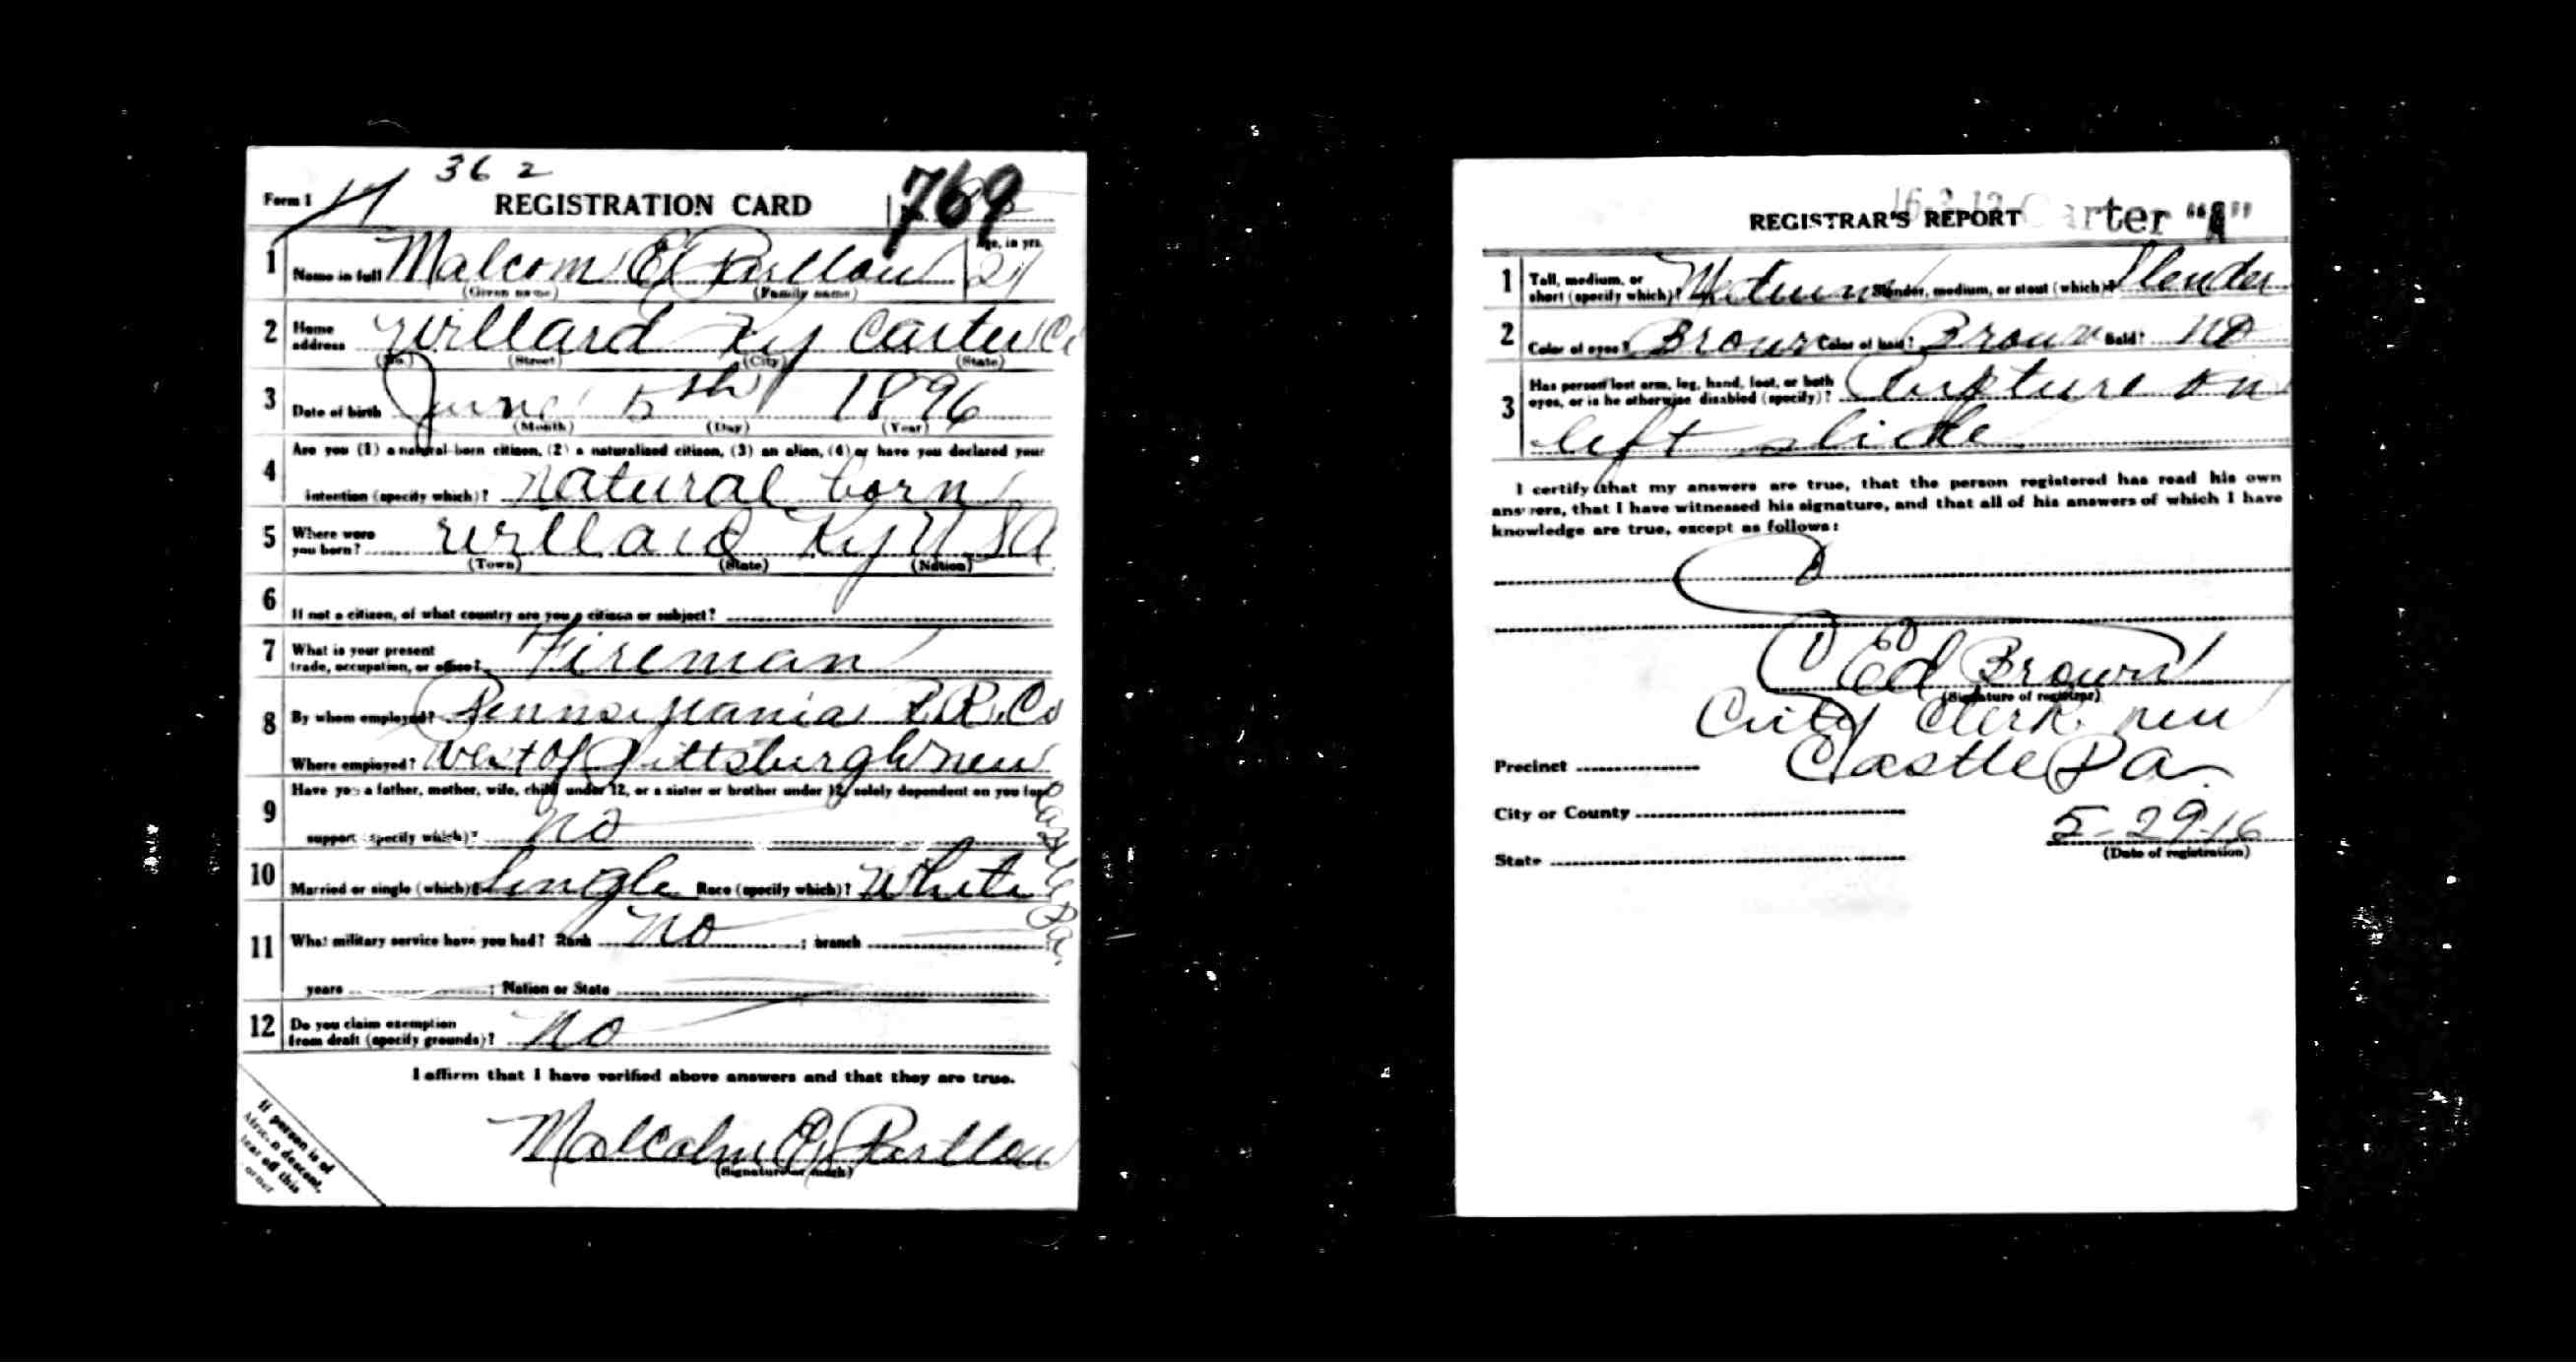 36 2
Form 1 REGISTRATION CARD 769
1 Name in full Malcom E Partlow Age, in yrs. 21
(Given name) (Family name)
2 Home address Willard Ky Carter Co
(No.) (Street) (City) (State)
3 Date of birth June 5th 1896
(Month) (Day) (Year)
4 Are you (1) a natural-born citizen, (2) a naturalized citizen, (3) an alien, (4) or have you declared your
intention (specify which)? natural born
5 Where were you born? Willard Ky U SA
(Town) (State) (Nation)
6 If not a citizen, of what country are you a citizen or subject?
7 What is your present trade, occupation, or office? Fireman
8 By whom employed? Pennsylvania R.R. Co
Where employed? West of Pittsburgh new Castle Pa.
9 Have you a father, mother, wife, child under 12, or a sister or brother under 12, solely dependent on you for
support (specify which)? no
10 Married or single (which)? Single Race (specify which)? White
11 What military service have you had? Rank no ; branch
years ; Nation or State
12 Do you claim exemption from draft (specify grounds)? no
I affirm that I have verified above answers and that they are true.
Malcolm E Partlow
(Signature or mark)
If person is of
African descent,
tear off this
corner
REGISTRAR'S REPORT 16-2-12- Carter "A"
1 Tall, medium, or short (specify which)? Medium Slender, medium, or stout (which)? Slender
2 Color of eyes? Brown Color of hair? Brown Bald? no
3 Has person lost arm, leg, hand, foot, or both
eyes, or is he otherwise disabled (specify)? Rupture on
left slide
I certify that my answers are true, that the person registered has read his own
answers, that I have witnessed his signature, and that all of his answers of which I have
knowledge are true, except as follows:
C Ed Brown
(Signature of registrar)
City Clerk new
Precinct Castle Pa
City or County
5-29-16
State (Date of registration)